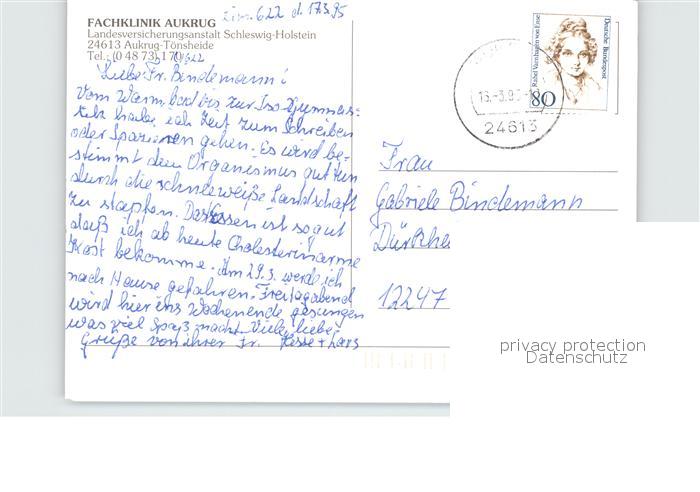 Zim. 622 d. 17.3.95
FACHKLINIK AUKRUG
Landesversicherungsanstalt Schleswig-Holstein
24613 Aukrug-Tönsheide
Tel.: (0 48 73) 1 70/622
Liebe Fr. Bindemann!
Vom Warmbad bis zur Iso Gymnas-
tik habe ich Zeit zum Schreiben
oder Spazieren gehen. Es wird be-
stimmt dem Organismus gut tun
durch die schneeweiße Landschaft
zu stapfen. Das Essen ist so gut
daß ich ab heute Cholesterinarme
Kost bekomme. Am 29.3. werde ich
nach Hause gefahren. Freitagabend
wird hier ins Wochenende gesungen
was viel Spaß macht. Viele liebe
Grüße von Ihrer Fr. Hesse +
Deutsche Bundespost
Rahel Varnhagen von Ense
80
24613
Frau
Gabriele Bindemann
Dürkhe
12247
privacy protection
Datenschutz